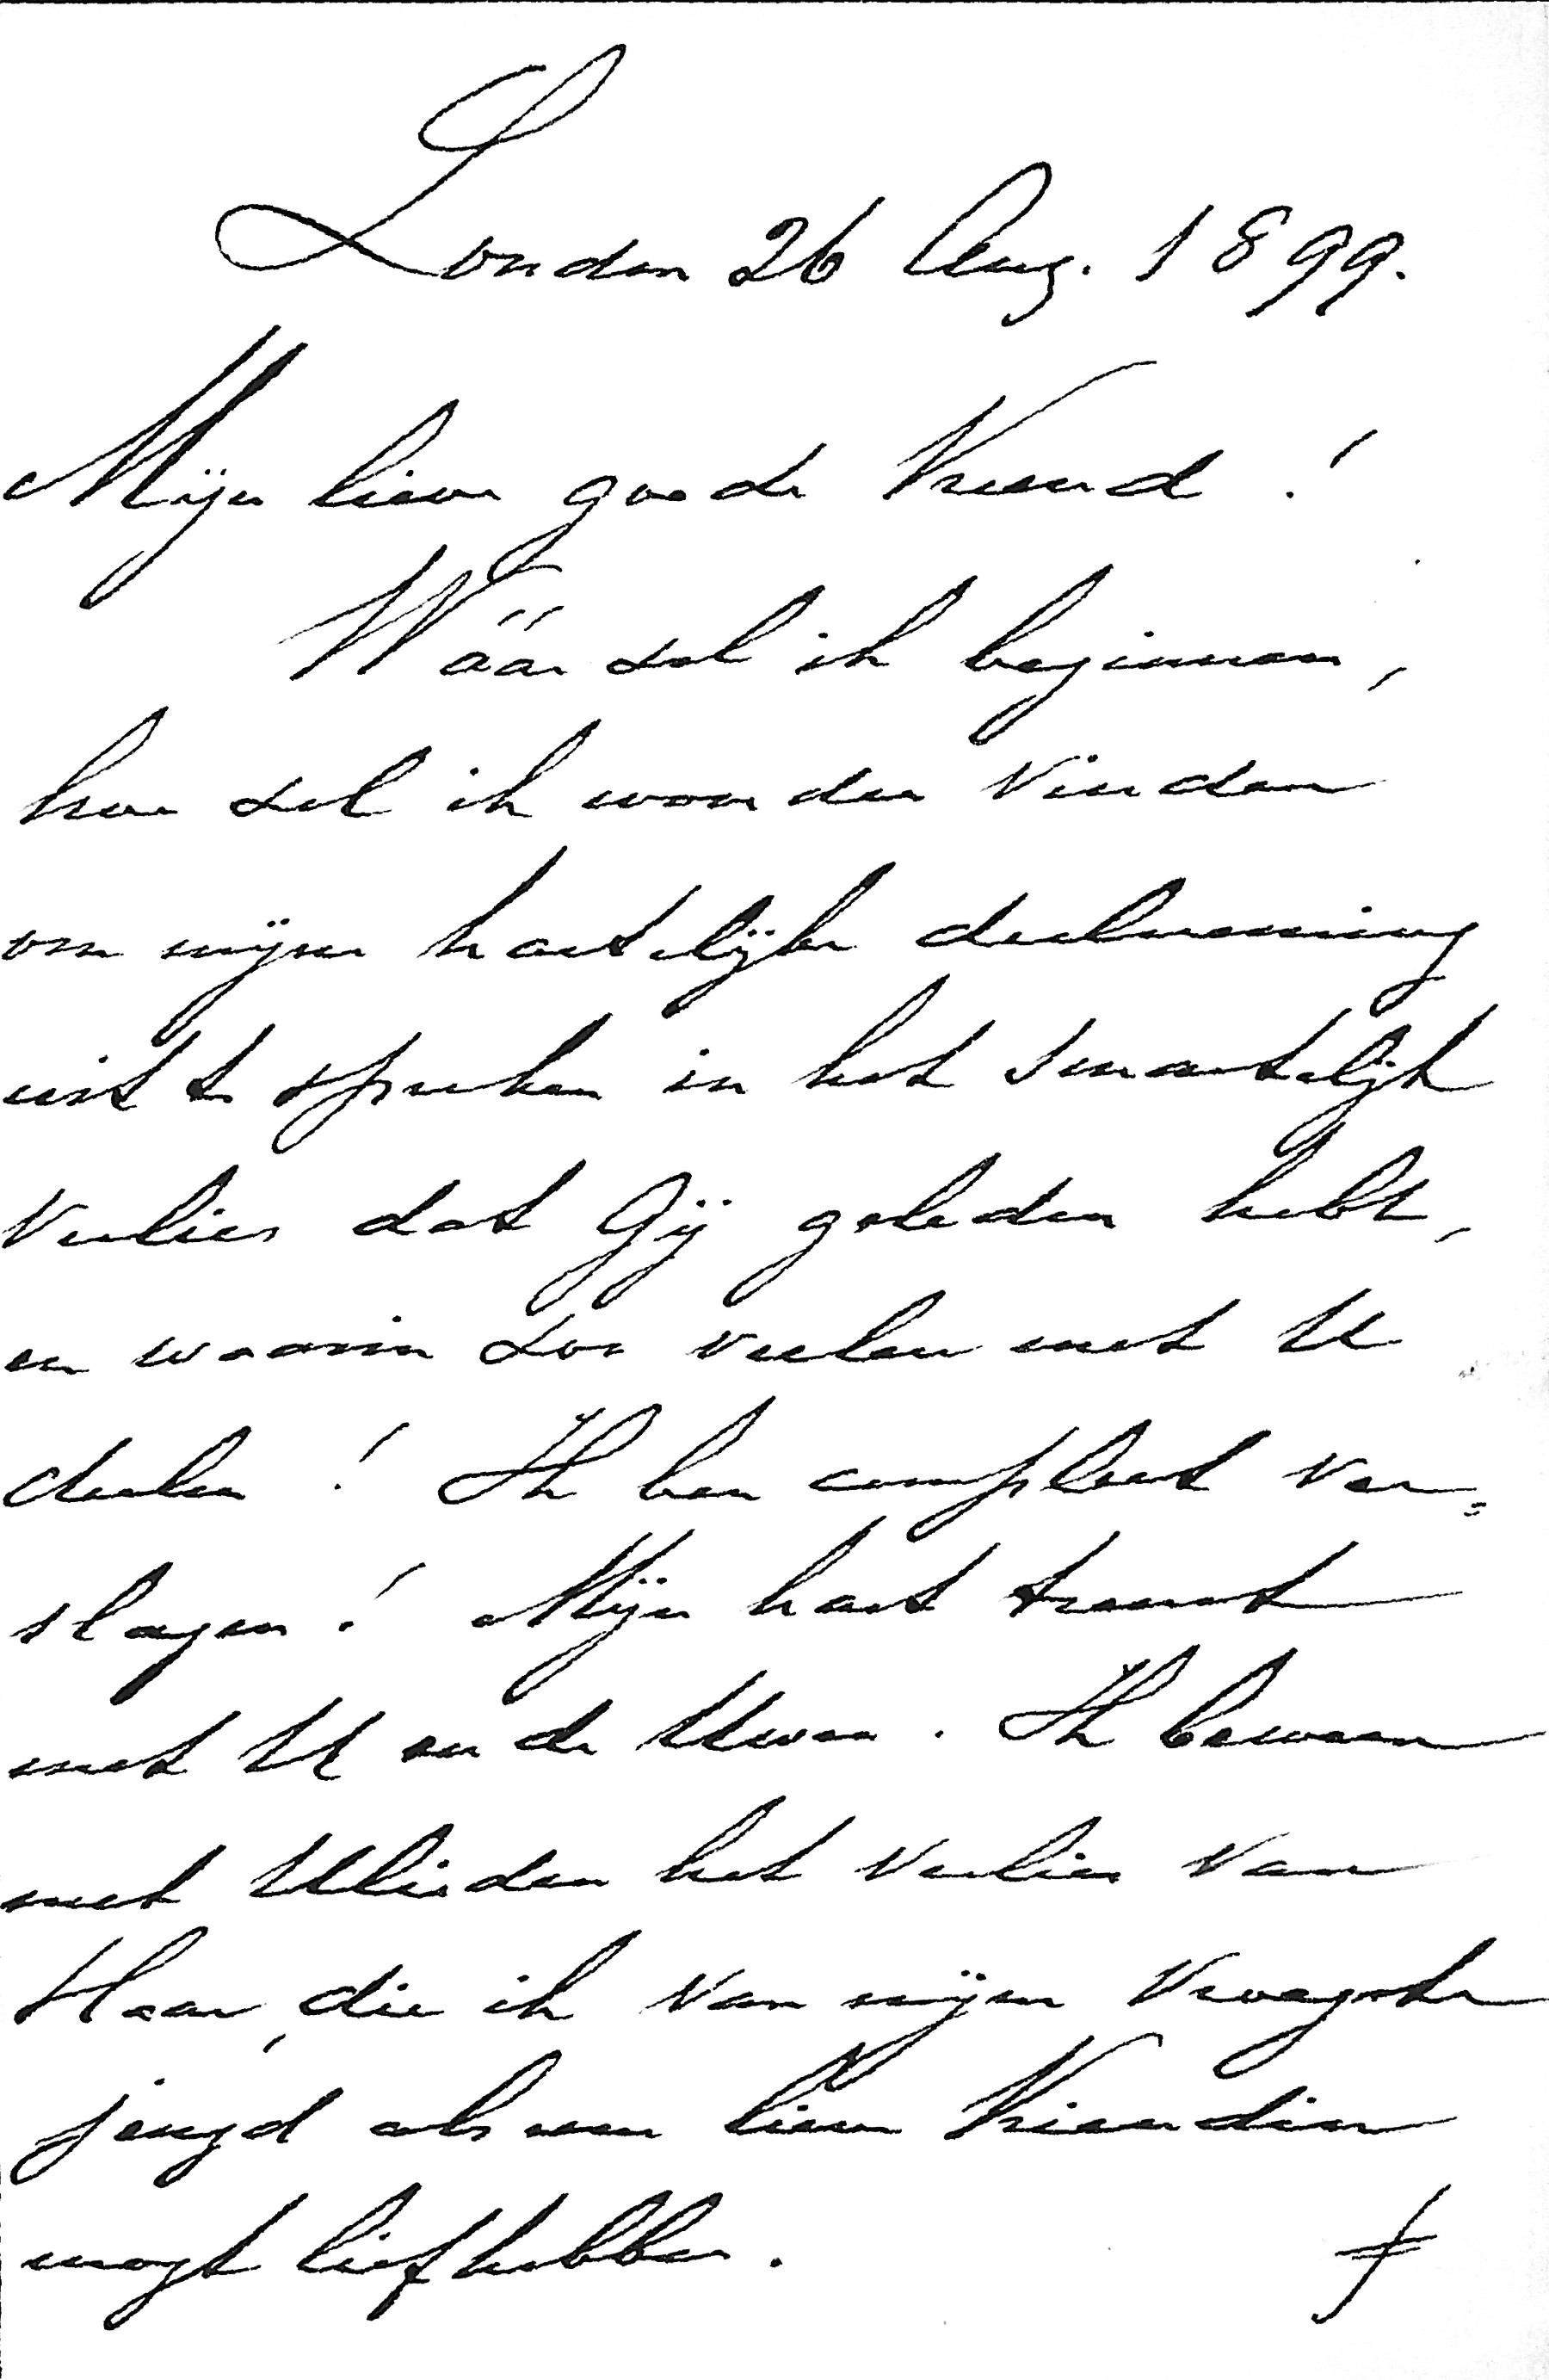 Londen 26 Aug. 1899.
Mijn lieve goede Vriend!
Wáár zal ik beginnen,
hoe zal ik woorden vinden
om mijne hartelijke deelneming
uit te spreken in het smartelijk
verlies dat Gij geleden hebt,
en waarin zoo veelen met U
deelen! Ik ben compleet ver=
slagen! Mijn hart treurt
met U en de Uwen. Ik beween
met Ulieden het verlies van
Haar, die ik van mijne vroegste
jeugd als een lieve Vriendin
mogt liefhebben.